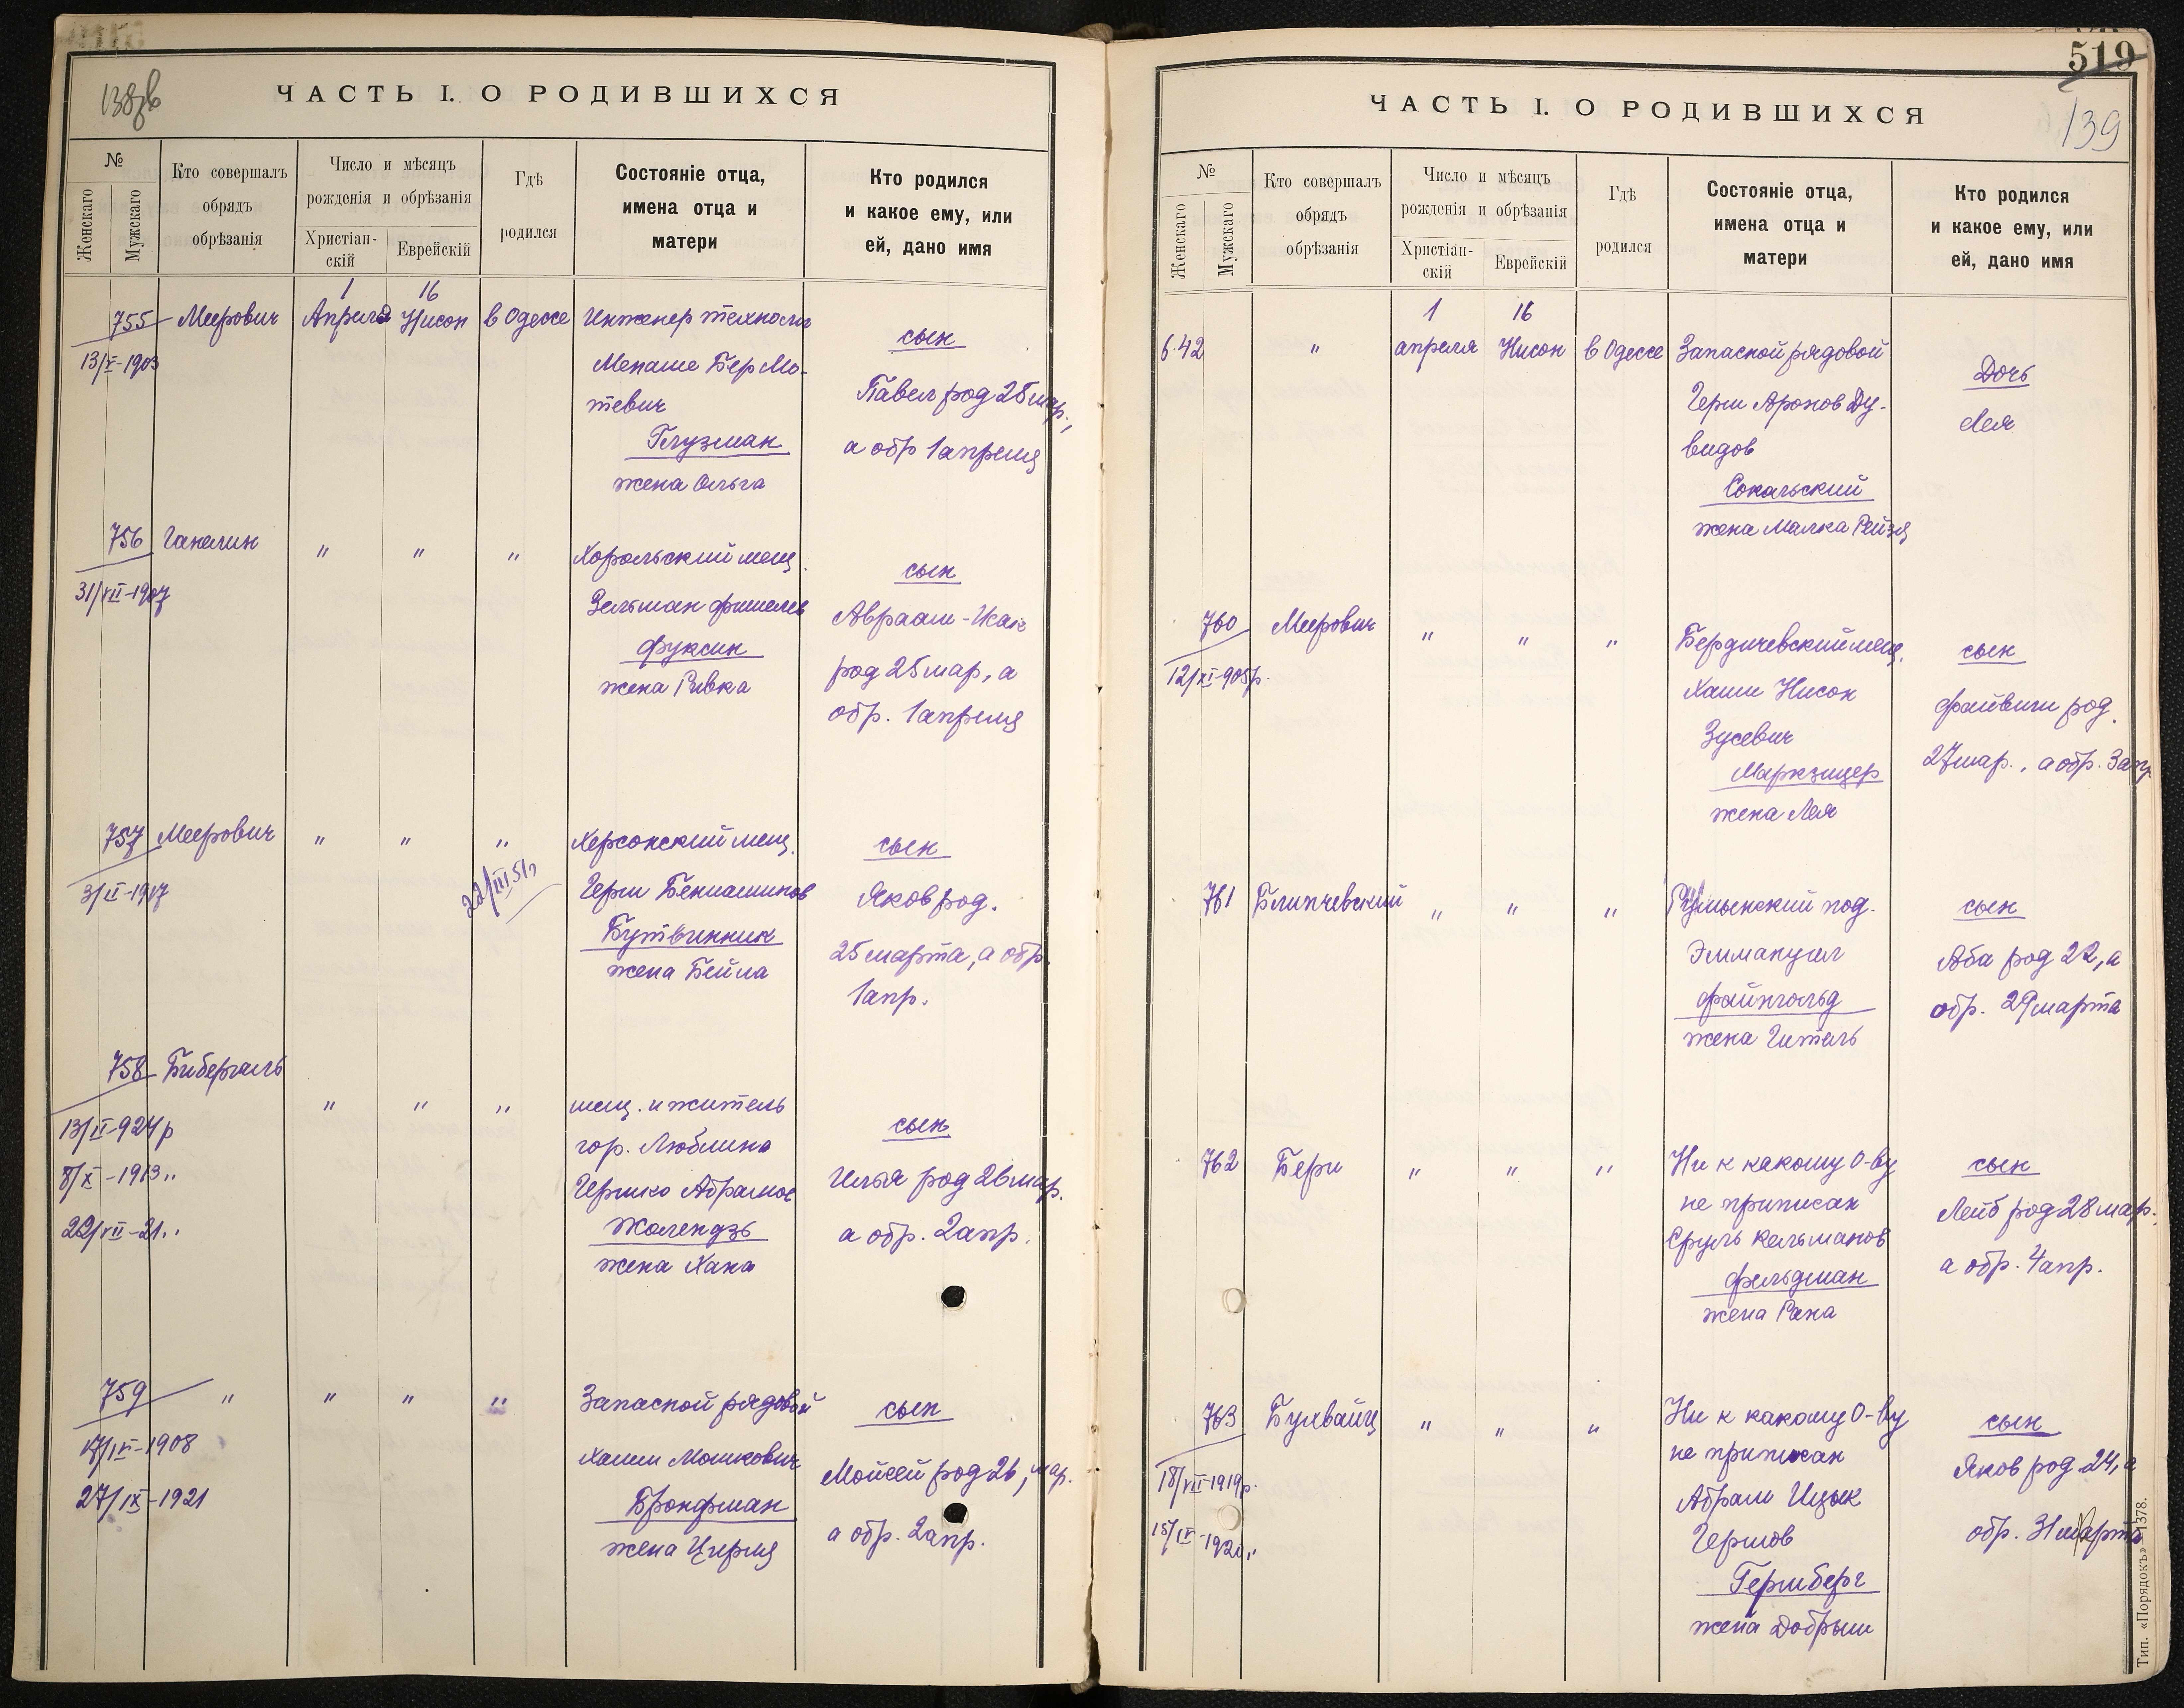 138об
ЧАСТЬ I. О РОДИВШИХСЯ
№
Женскаго
Мужскаго
Кто совершалъ
обрядъ
обрѣзанія
Число и мѣсяцъ
рожденія и обрѣзанія
Христіан-
скій
Еврейскій
Гдѣ
родился
Состояніе отца,
имена отца и
матери
Кто родился
и какое ему, или
ей, дано имя
1 16
755 Меерович Апреля Нисон в Одессе Инженер технолог
13/V-1903
Менаше Бер Мо-
тевич
Глузман
жена Ольга
сын
Павел род 25 мар.,
а обр 1 апреля
756 Ганелин " " " Хорольский мещ.
31/VII-1907
Зельман Фишелев
Фуксин
жена Ривка
сын
Авраам-Исак
род 25 мар, а
обр. 1 апреля
757 Меерович " " " Херсонский мещ.
3/II-1917
22/III 51г
Герш Бениаминов
Бутвинник
жена Бейла
сын
Яков род.
25 марта, а обр.
1 апр.
758 Бибергаль " " " мещ. и житель
13/II-924р
8/X-1913"
22/VII-21"
гор. Люблина
Гершко Абрамов
Жолендзь
жена Хана
сын
Илья род 26 мар.
а обр. 2 апр.
759 " " " " Запасной рядовой
17/IV-1908
27/IX-1921
Хаим Мошкович
Бронфман
жена Цирля
сын
Мойсей род 26, мар.
а обр. 2 апр.
519
139
ЧАСТЬ I. О РОДИВШИХСЯ
№
Женскаго
Мужскаго
Кто совершалъ
обрядъ
обрѣзанія
Число и мѣсяцъ
рожденія и обрѣзанія
Христіан-
скій
Еврейскій
Гдѣ
родился
Состояніе отца,
имена отца и
матери
Кто родился
и какое ему, или
ей, дано имя
1 16
642 " апреля Нисон в Одессе Запасной рядовой
Герш Аронов Ду-
видов
Сокальский
жена Малка Рейзя
Дочь
Лея
760 Меерович " " " Бердичевский мещ.
12/XI-905р.
Хаим Нисон
Зусевич
Маркзицер
жена Лея
сын
Файвиш род.
27 мар., а обр. 3 апр
761 Блинчевский " " " Румынский под.
Эммануил
Файнгольд
жена Гитель
сын
Аба род 22, а
обр. 29 марта
762 Берш " " " Ни к какому О-ву
не приписан
Сруль Кельманов
Фельдман
жена Рана
сын
Лейб род 28 мар.,
а обр. 4 апр.
763 Бухвайц " " " Ни к какому О-ву
18/VII-1919р.
15/IV-1920"
не приписан
Абрам Ицык
Гершов
Гершберг
жена Добрыш
сын
Яков род 24, а
обр. 31 марта
Тип. «Порядокъ»—1378.